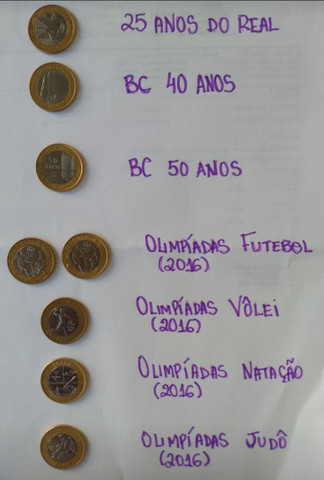 25 ANOS DO REAL
BC 40 ANOS
BC 50 ANOS
OLIMPÍADAS FUTEBOL
(2016)
OLIMPÍADAS VÔLEI
(2016)
OLIMPÍADAS NATAÇÃO
(2016)
OLIMPÍADAS JUDÔ
(2016)